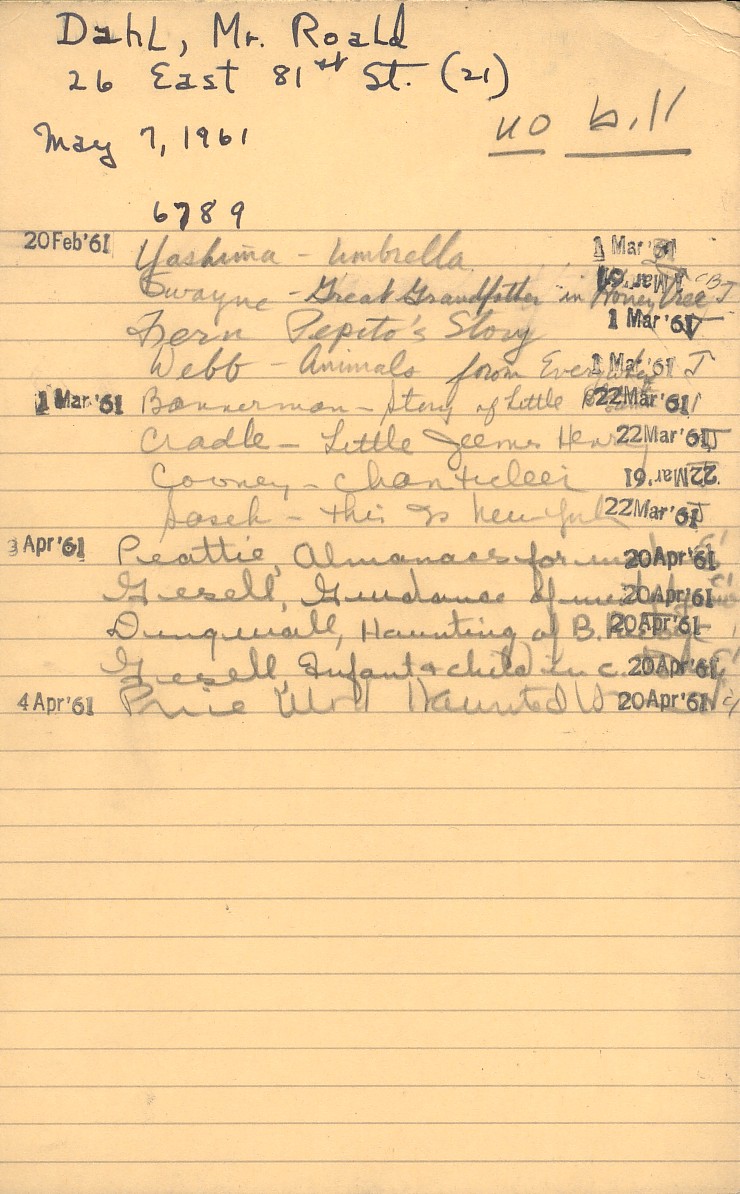 Dahl, Mr. Roald
26 East 81st St. (21)
May 7, 1961 no bill
6789
20 Feb '61 Yashima - Umbrella 1 Mar '61
Swayne - Great Grandfather in Honey Tree 1 Mar '61 J
Fern Pepito's Story 1 Mar '61 J
Webb - Animals from Everywhere 1 Mar '61 J
1 Mar '61 Bannerman - Story of Little 22 Mar '61
Credle - Little Jeemes Henry 22 Mar '61 J
Cooney - Chanticleer 22 Mar '61
Sasek - This Is New York 22 Mar '61 J
3 Apr '61 Peattie, Almanac for 20 Apr '61
Gesell, Guidance of 20 Apr '61
Dingwall, Haunting of B. 20 Apr '61
Gesell, Infant & child in c. 20 Apr '61
4 Apr '61 Price Haunted 20 Apr '61